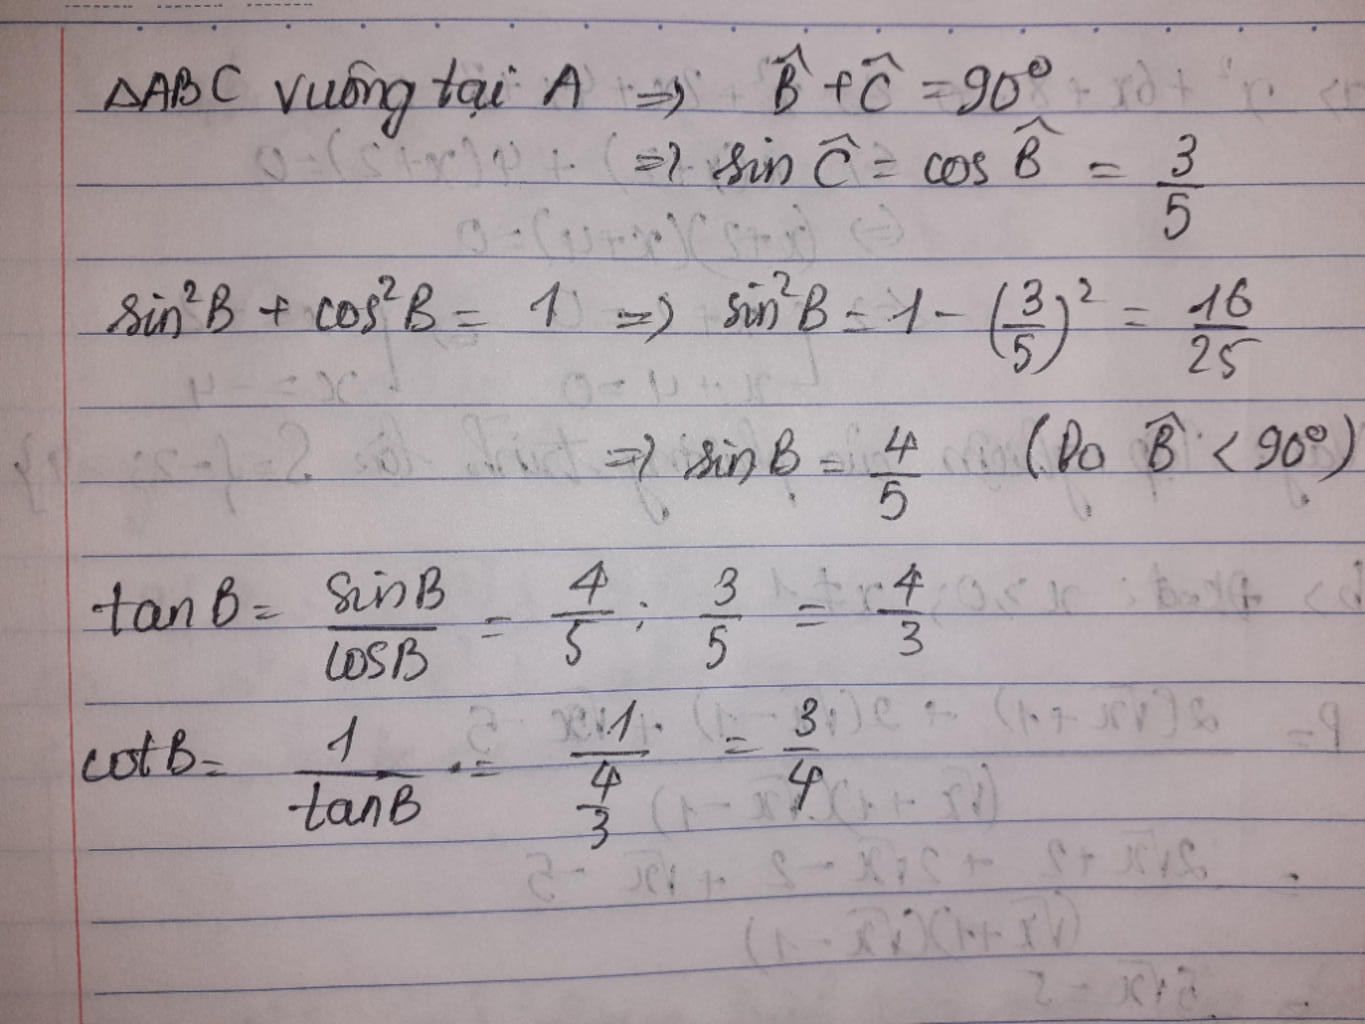 ΔABC vuông tại A => B̂ + Ĉ = 90°
=> sin Ĉ = cos B̂ = 3/5
sin²B + cos²B = 1 => sin²B = 1 - (3/5)² = 16/25
=> sin B = 4/5 (Do B̂ < 90°)
tan B = sinB/cosB = 4/5 : 3/5 = 4/3
cot B = 1/tanB = 1/(4/3) = 3/4